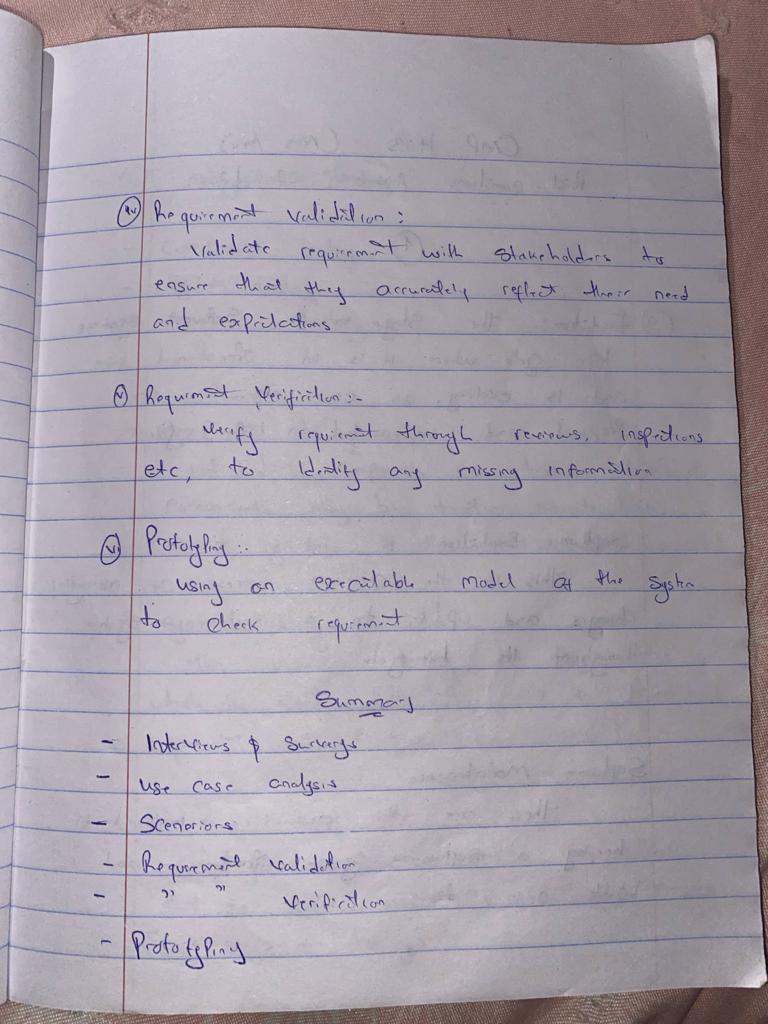 (iv) Requirement validation :
validate requirement with stakeholders to
ensure that they accurately reflect their need
and expectations
(v) Requirment Verification :-
verify requiremt through reviews, inspections
etc, to Identify any missing information
(vi) Prototyping :-
using an executable model of the system
to check requirement
Summary
- Interviews & Surveys
- use case analysis
- Scenariors
- Requirement validation
- " " Verification
- Prototyping